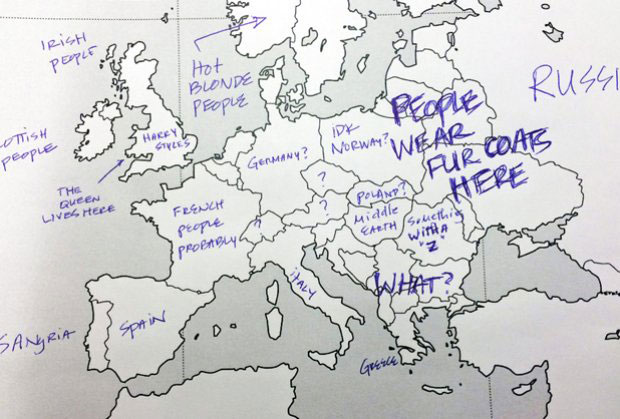 IRISH
PEOPLE
HOT
BLONDE
PEOPLE
RUSSI
OTTISH
PEOPLE
HARRY
STYLES
THE
QUEEN
LIVES HERE
GERMANY?
IDK
NORWAY?
PEOPLE
WEAR
FUR COATS
HERE
?
POLAND?
?
MIDDLE
EARTH
Something
WITH A
Z
FRENCH
PEOPLE
PROBABLY
?
ITALY
WHAT?
SANGRIA
SPAIN
GREECE